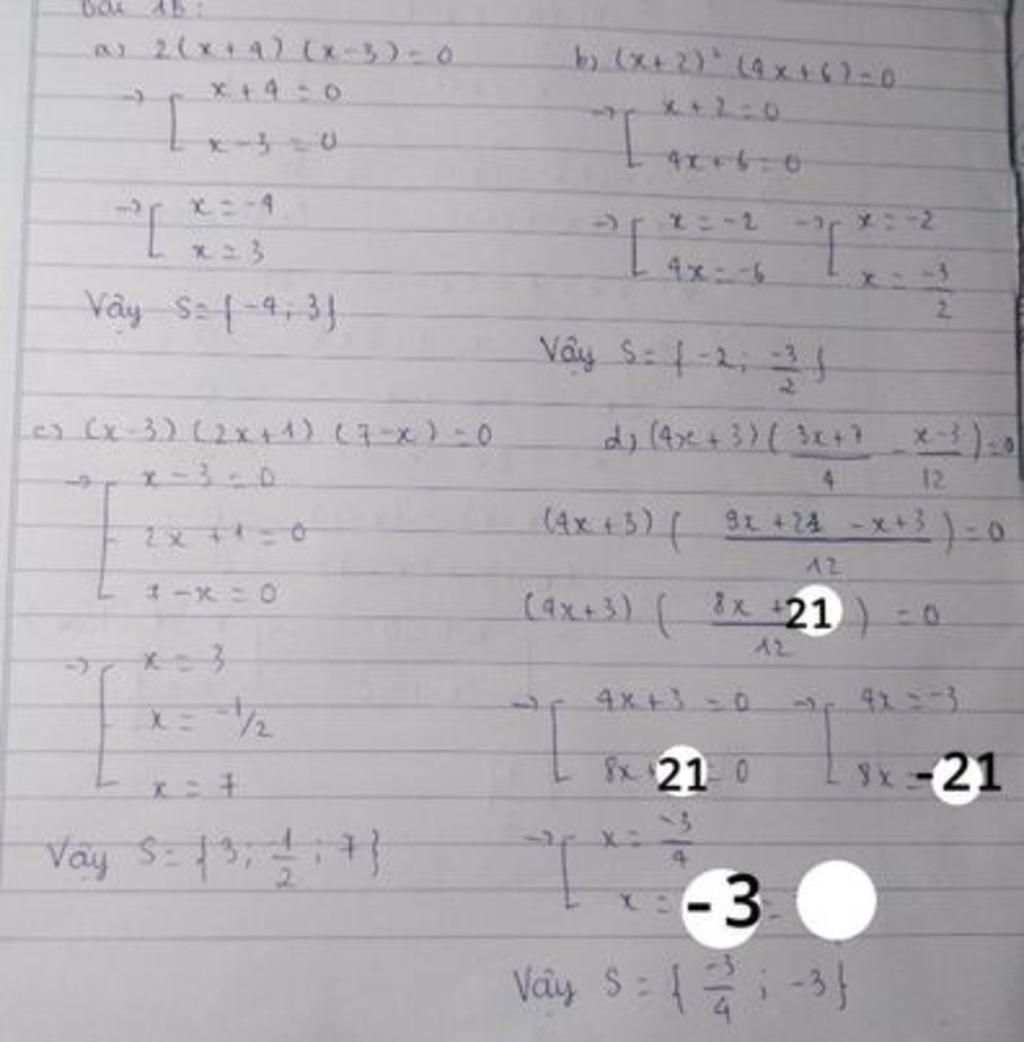 Bài 1B:
a) 2(x+4)(x-3)=0
→ [ x+4=0
x-3=0
→ [ x=-4
x=3
Vậy S={-4; 3}
b) (x+2)² (4x+6)=0
→ [ x+2=0
4x+6=0
→ [ x=-2 → [ x=-2
4x=-6 x=-3/2
Vậy S={-2; -3/2}
c) (x-3)(2x+1)(7-x)=0
→ [ x-3=0
2x+1=0
7-x=0
→ [ x=3
x=-1/2
x=7
Vậy S={3; -1/2; 7}
d) (4x+3)(3x+7/4 - x-3/12)=0
(4x+3)(9x+21-x+3/12)=0
(4x+3)(8x+21/12)=0
→ [ 4x+3=0 → [ 4x=-3
8x+21=0 8x=-21
→ [ x=-3/4
x=-3=
Vậy S={-3/4; -3}